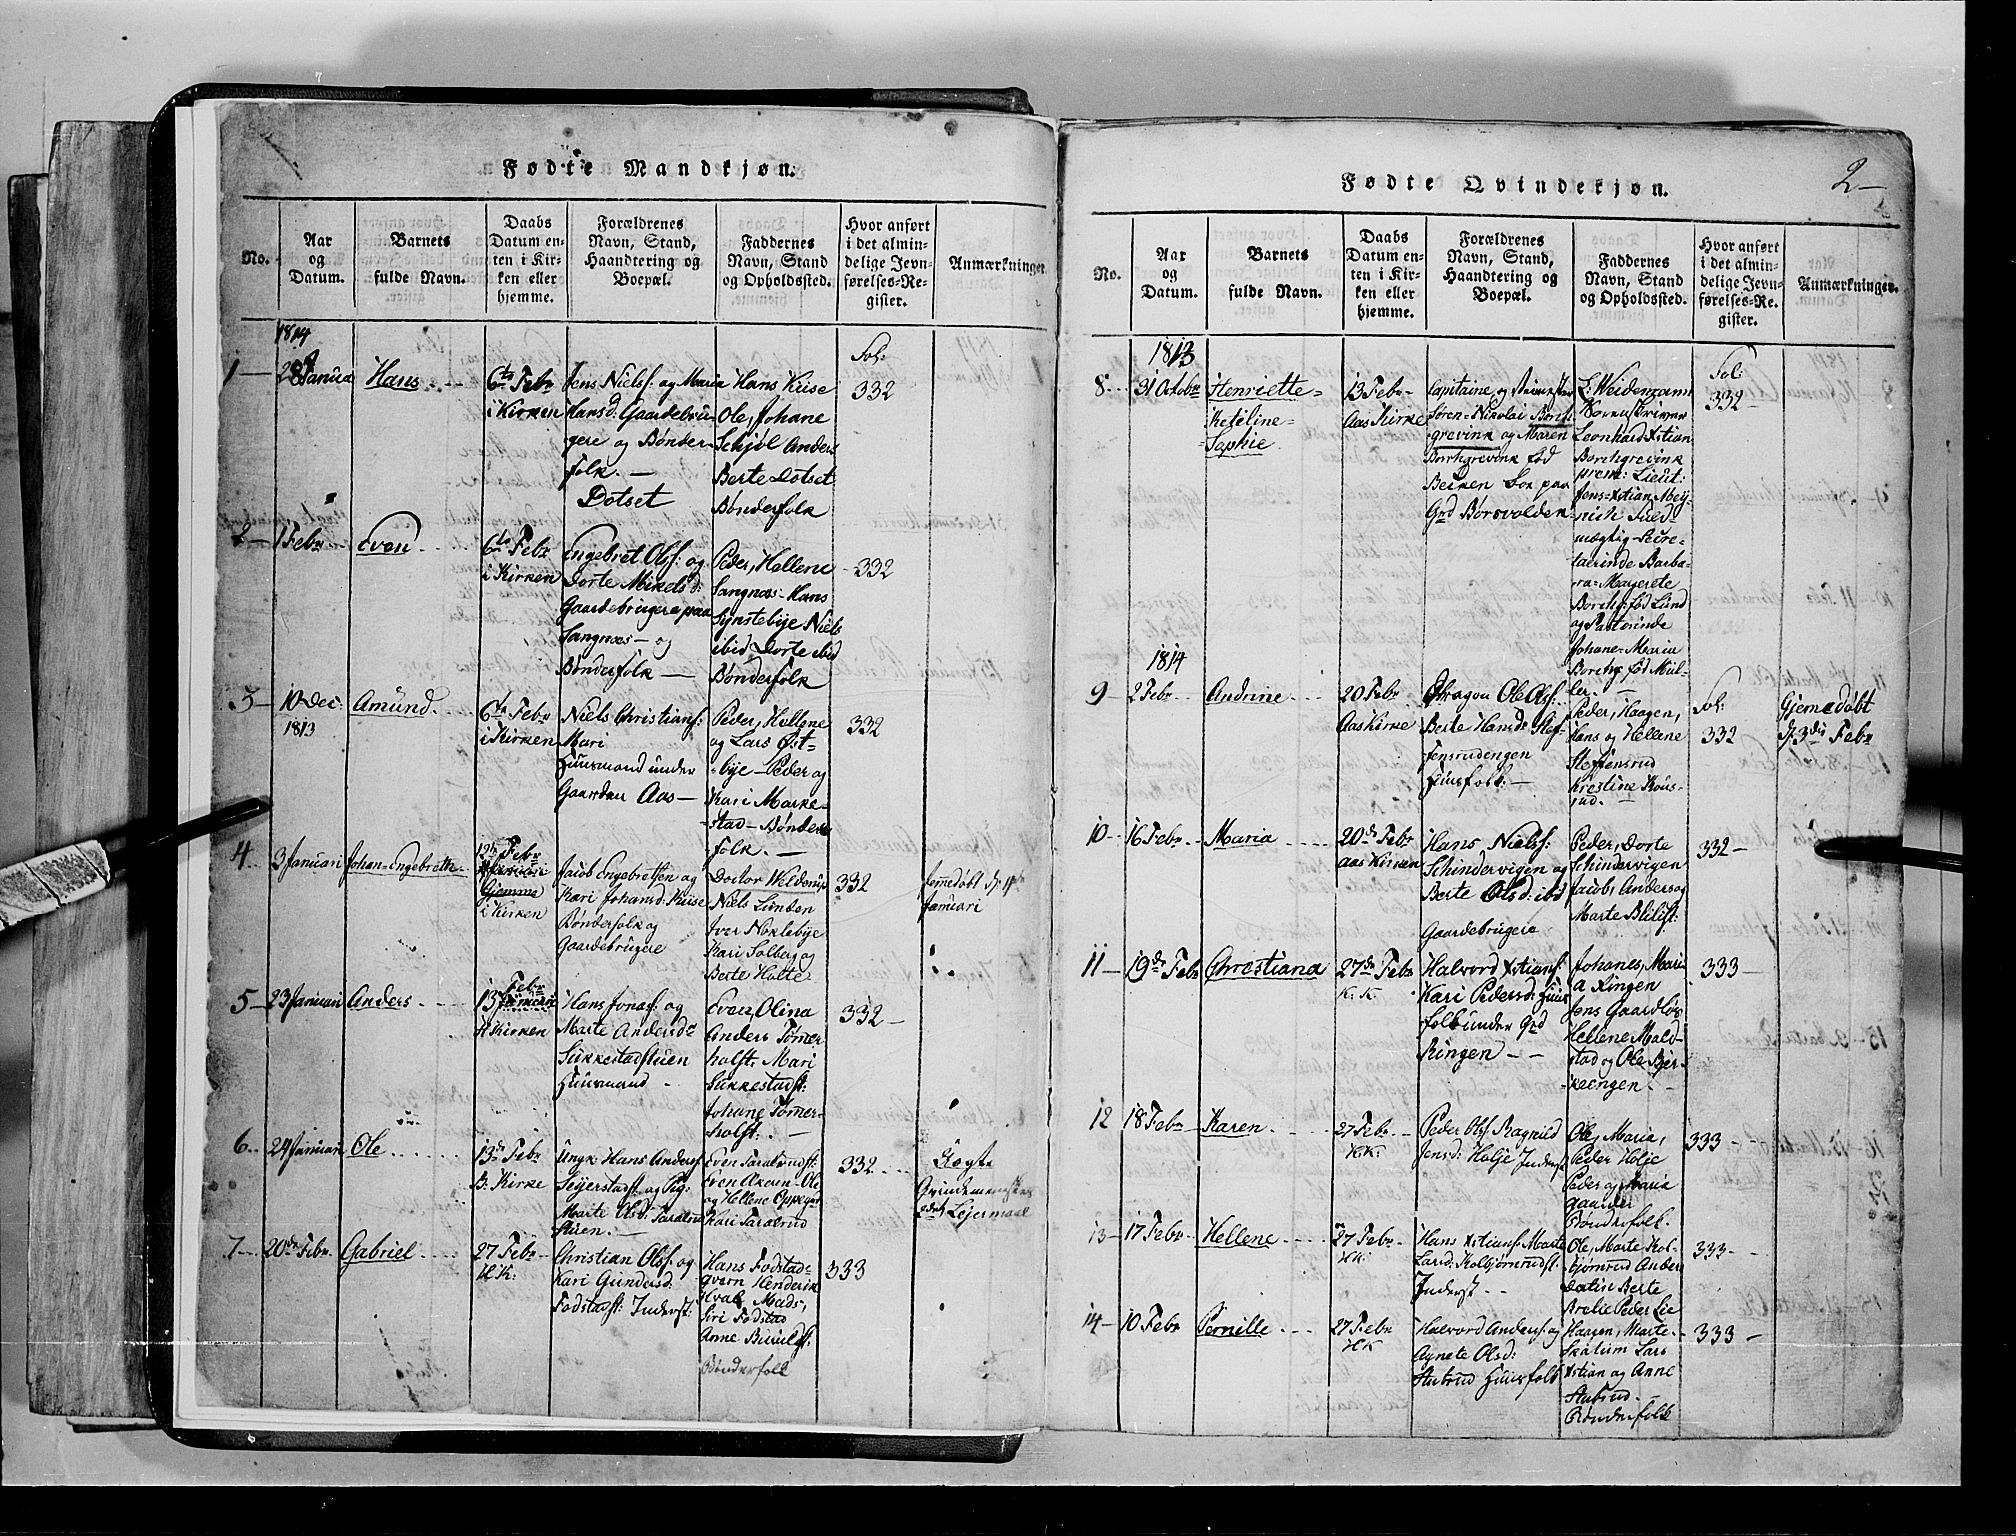 Fødte Mandkjøn.
No.
Aar
og
Datum.
Barnets
fulde Navn.
Daabs
Datum en-
ten i Kir-
ken eller
hjemme.
Forældrenes
Navn, Stand,
Haandtering og
Boepæl.
Faddernes
Navn, Stand
og Opholdssted.
Hvor anført
i det almin-
delige Jevn-
førelses-Re-
gister.
Anmærkninger.
1814
1 28 Januar
Hans
6te Febr
i Kirken
Jens Nielsf: og Maria
Hansd: Gaardebru-
gere og Bønder-
folk. —
Dotset
Hans Krise
Ole, Johane
Schjøl Anders
Berte Dotset
Bønderfolk
Fol:
332
2 — 1 Febr
Even
6te Febr
i Kirken
Engebret Olsf: og
Dorte Mikelsd:
Gaardebrugere paa
Sangnæs — og
Bønderfolk —
Peder, Hellene
Sangnæs — Hans
Synstebye Niels
ibid Dorte ibid
Bønderfolk
332
3 — 10 Dec:
1813
Amund
6te Febr
i Kirken
Niels Christiansf:
Mari
Huusmand under
Gaarden Aas —
Peder, Hellene
og Lars Øst-
bye — Peder og
Kari Marke-
stad — Bønder-
folk. —
332
4 3 Januari
Johan Engebreth
Febr
Hjemme
i Kirken
Jacob Engebretsen og
Kari Johansd: Krise
Bønderfolk og
Gaardebrugere
Doctor
Niels Lunden
Iver Nøklebye
Kari Solberg og
Berte Holte
332
Januari
5 — 23 Januari
Anders
13 Febr
H Kirken
Hans Jonasf: og
Marte Andersd:
Sukkestadstuen
Huusmand
Even, Olina
Anders Tømer-
holst: Mari
Sukkestadst:
Johane Tømer-
holst: —
332 —
6 24 Januari
Ole
13de Febr
B: Kirke
Ungk Hans Andersf:
Seyerstadst: og Pig:
Marte Olsd: Taralrud
stuen. —
Even Taralrudst:
Even Ole
og Hellene Oppegar
Kari Taralrud
332
Leiermaal
7 — 20de Febr
Gabriel
27 Febr
H K:
Christian Olsf: og
Kari Gundersd:
Fodstadst: Inderst:
Hans Fodstad-
qvern Henderik
Hval Mads,
Siri Fodstad
Anne
Bønderfolk
333
Fødte Qvindekjøn.
2 —
No.
Aar
og
Datum.
Barnets
fulde Navn.
Daabs
Datum en-
ten i Kir-
ken eller
hjemme.
Forældrenes
Navn, Stand,
Haandtering og
Boepæl.
Faddernes
Navn, Stand
og Opholdssted.
Hvor anført
i det almin-
delige Jevn-
førelses-Re-
gister.
Anmærkninger.
1813
8 31 Octobr
Henriette-
Keteline-
Sophie
13 Febr
Aas Kirke
Capitaine
Søren Nikolai Borch-
grevink og Maren
Borchgrevink fød
boe paa
Grd Børsvolden
L: Weidemann
Sorenskriver
Leonhard Xstian
Borchgrevink
prem: Lieut:
Jens Xstian Mey-
nich Fuld-
mægtig Secre-
tairinde Barba-
ra Margrete
Borchg: fød Lund
og Pastorinde
Johane Maria
Borchg fød Mül-
ler. —
Fol:
332 —
1814
9 — 2 Febr
Andrine
20 Febr
Aas Kirke
Dragon Ole Olsf:
Berte Hansd: Stef-
fensrudengen
Huusfolk. —
Peder, Haagen,
Hans og Hellene
Steffensrud
Kirestine
Fol:
332
Hjemedøbt
d. 3die Febr
10 — 16 Febr
Maria
20de Febr
Aas Kirken
Hans Nielsf:
Schindervigen og
Berte Olsd: ibd
Gaardebrugere
Peder, Dorte
Schindervigen
Jacob, Anders og
Marte
332 —
11 — 19de Febr
Christiana
27de Febr
H. K.
Halvord Xstiansf:
Kari Pedersd: Huus
folk under Grd
Ringen — —
Johanes, Maria
a Ringen
Jens Gaardløs
Hellene Mæl-
stad og Ole Bjer-
keengen. —
333 —
12 18 Febr
Karen
27 Febr
H.K.
Peder Olsf Ragnild
Jensd: Holje Inderst
Ole, Maria,
Peder Holje
Peder og Maria
Gaarder
Bønderfolk.
333 —
13 — 17 Febr
Hellene
27 Febr
H.K:
Hans Xstiansf: Marte
Larsd: Kolbjørnrudst:
Inderst — —
Ole, Marte Kol-
bjørnrud Anders
Berte
Peder Lie
333 —
14 — 10 Febr
Pernille
27 Febr
H K
Halvord Andersf: og
Agnete Olsd:
Stubrud Huusfolk
Haagen, Marte
Skatum Lars
Xstian og Anne
Stubrud. —
Bønderfolk
333 —